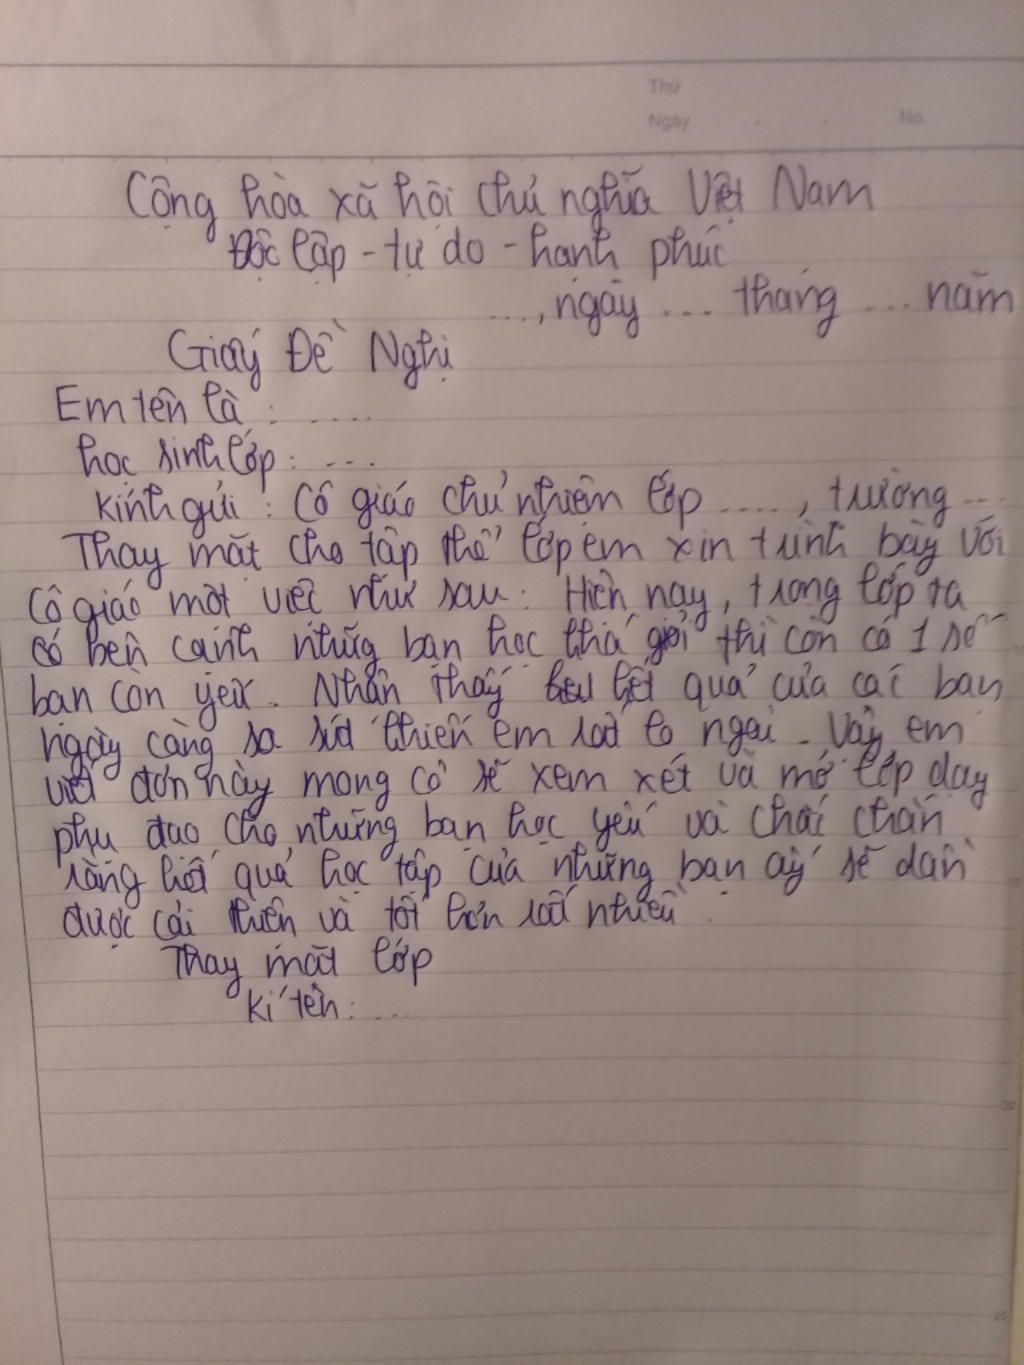 Thứ
Ngày
No.
Cộng hòa xã hội chủ nghĩa Việt Nam
Độc lập - tự do - hạnh phúc
..., ngày ... tháng ... năm
Giấy Đề Nghị
Em tên là : .....
học sinh lớp : ...
Kính gửi : Cô giáo chủ nhiệm lớp ...., trường ...
Thay mặt cho tập thể lớp em xin trình bày với
cô giáo một việc như sau : Hiện nay, trong lớp ta
có bên cạnh những bạn học khá giỏi thì còn có 1 số
bạn còn yếu. Nhận thấy kết quả của các bạn
ngày càng sa sút khiến em rất lo ngại. Vậy em
viết đơn này mong cô sẽ xem xét và mở lớp dạy
phụ đạo cho những bạn học yếu và chắc chắn
rằng kết quả học tập của những bạn ấy sẽ dần
được cải thiện và tốt hơn rất nhiều.
Thay mặt lớp
Kí tên : ...
20
25